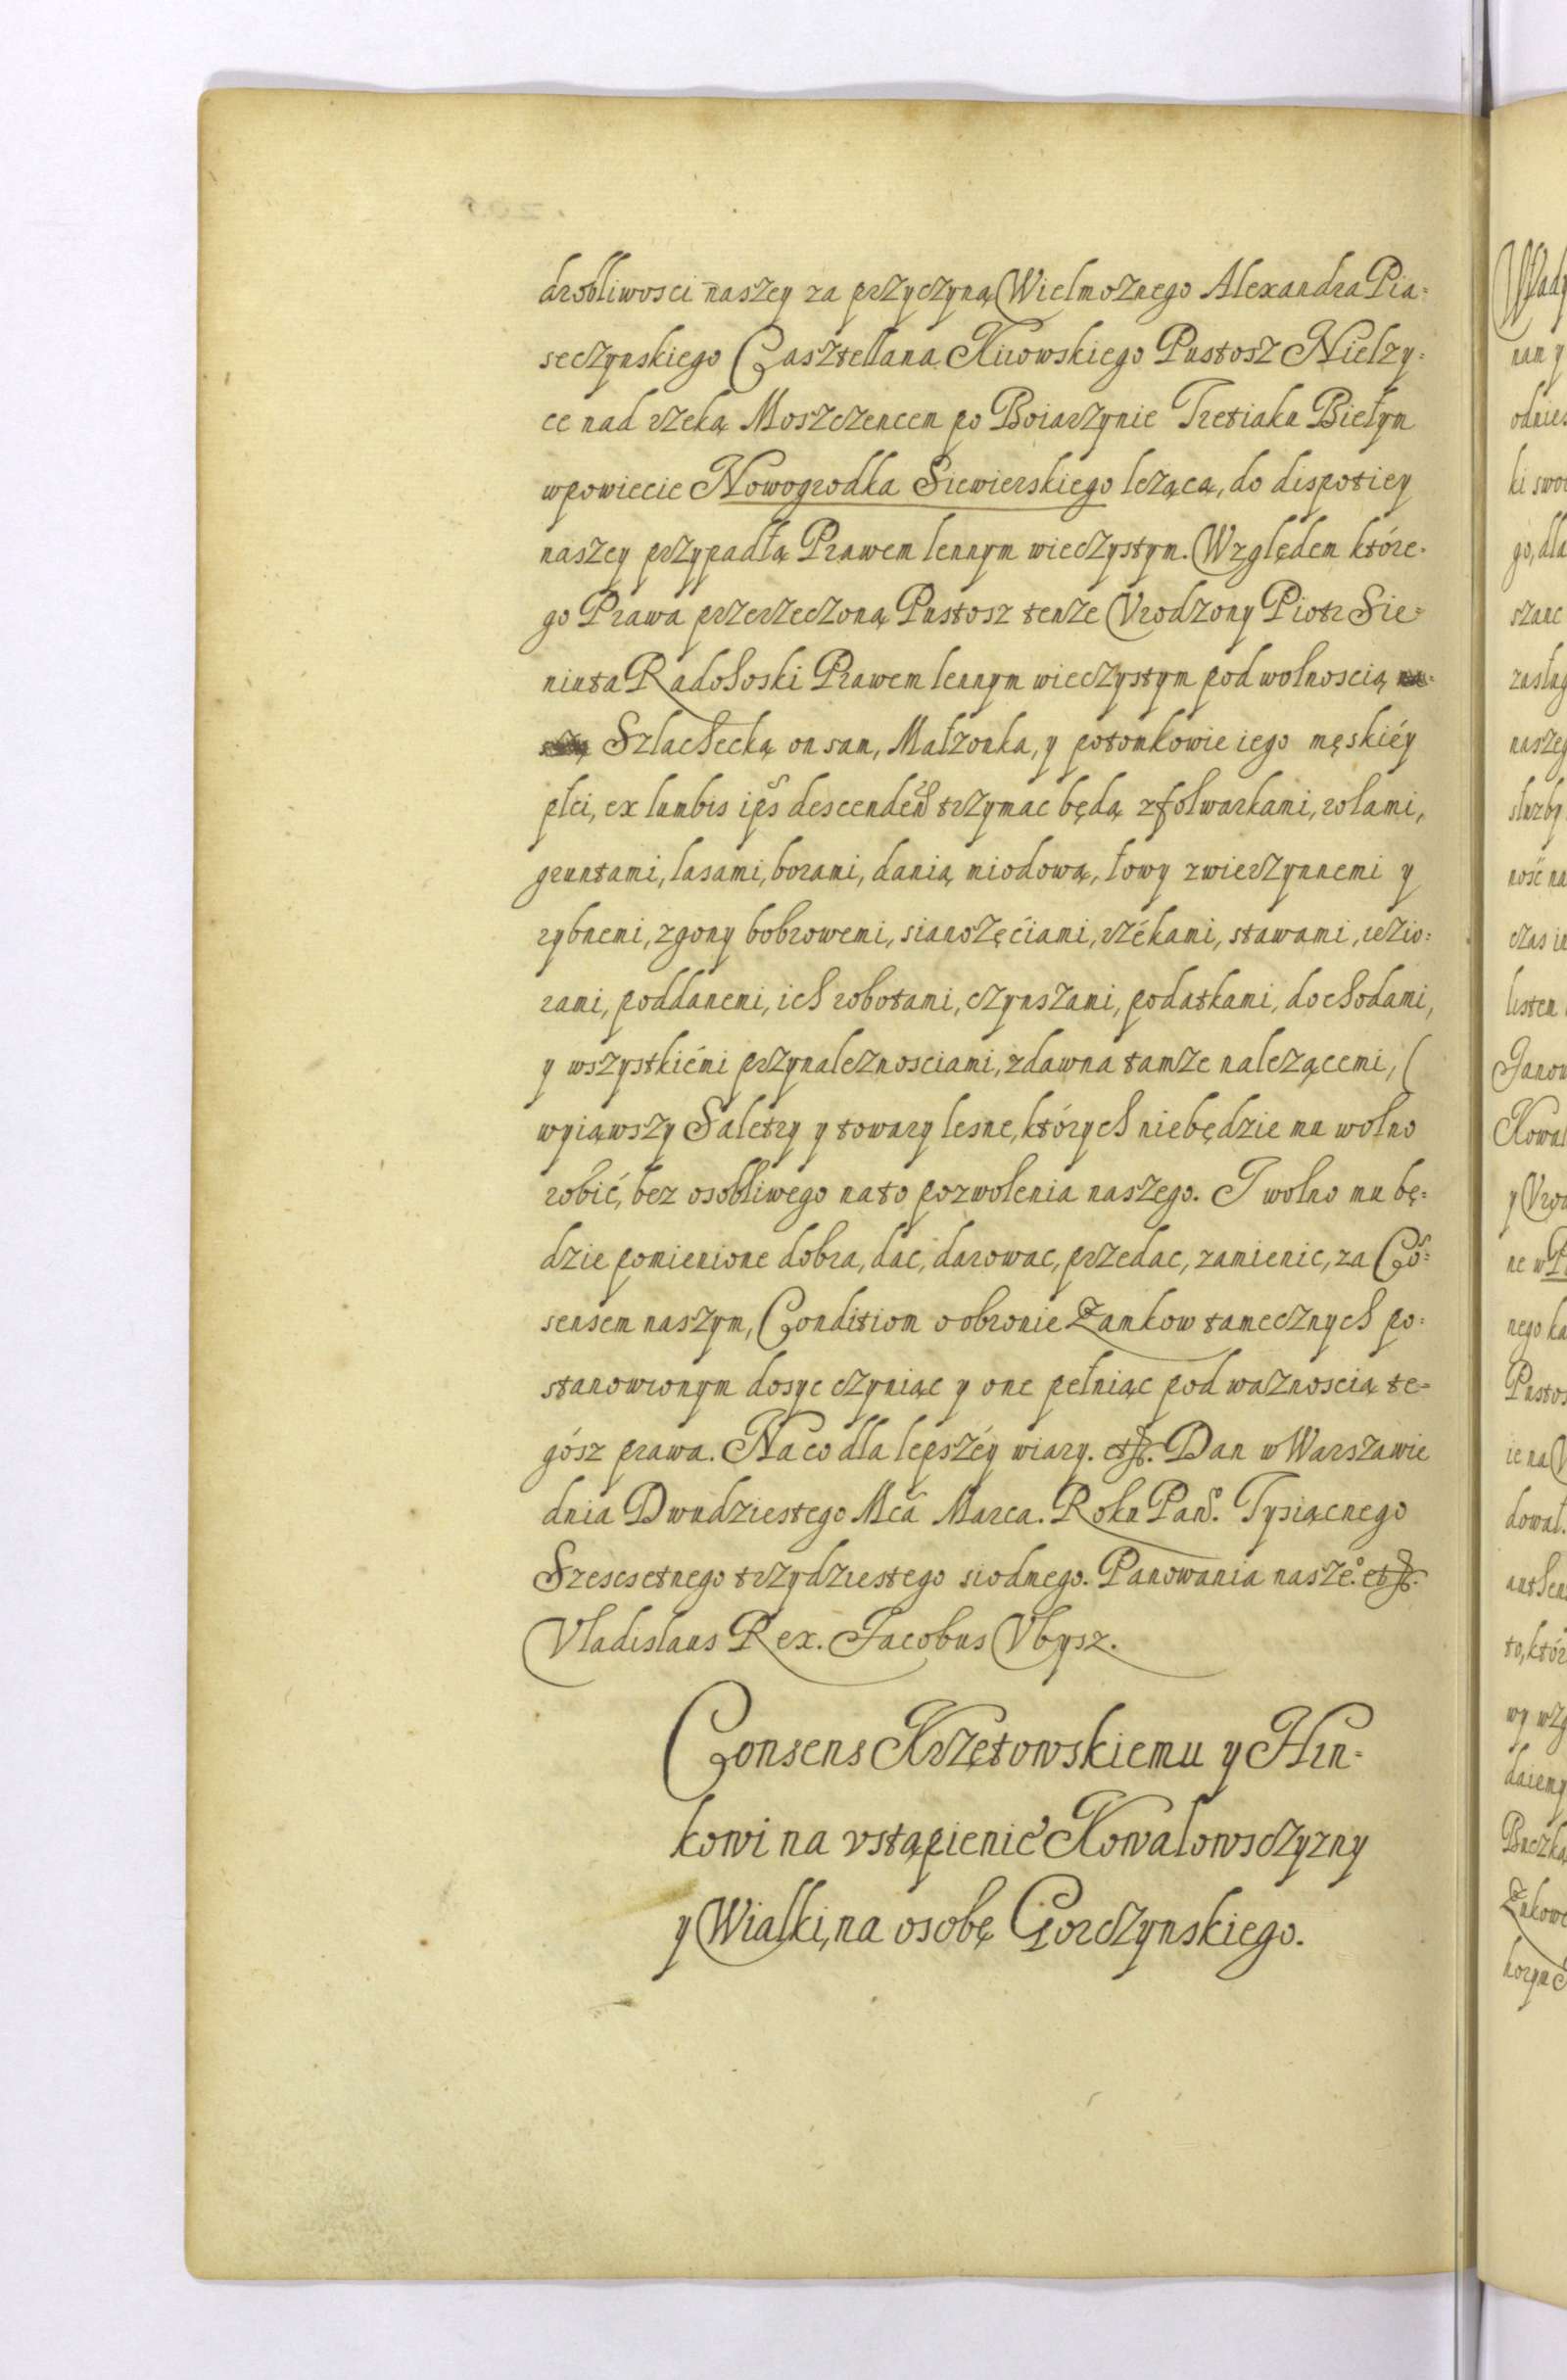 drobliwosci naszey za przyczyną Wielmoznego Alexandra Pia=
seczynskiego Casztellana Kiiowskiego Pustosz Nielzy=
ce nad rzeką Moszczencem po Boiarzynie Tretiaku Biełym
wpowiecie Nowogrodka Siewierskiego lezącą, do dispotiey
naszey przypadłą Prawem lennym wieczystym. Względem które=
go Prawa przerzeczoną Pustosz tenze Vrodzony Piotr Sie=
niuta Radohoski Prawem lennym wieczystym pod wolnoscią
Szlachecką on sam, Małzonka, y potomkowie iego męskiéy
płci, ex lumbis ips descendeñ trzymac będą zfolwarkami, rolami,
gruntami, lasami, borami, danią miodową, łowy zwierzynnemi y
rybnemi, zgony bobrowemi, sianożęciami, rzékami, stawami, iezio=
rami, poddanemi, ich robotami, czynszami, podatkami, dochodami,
y wszystkiémi przynaleznosciami, zdawna tamze nalezącemi, (
wyiąwszy Saletry y towary lesne, których niebędzie mu wolno
robić, bez osobliwego nato pozwolenia naszego. I wolno mu bę=
dzie pomienione dobra, dac, darowac, przedac, zamienic, za Cõ=
sensem naszym, Condition o obronie Zamkow tamecznych po=
stanowionym dosyc czyniąc y one pełniąc pod waznoscią te=
gósz prawa. Na co dla lepszéy wiary. etc. Dan w Warszawie
dnia Dwudziestego Mcã Marca. Roku Pań. Tysiącnego
Szescsetnego trzydziestego siodmego. Panowania nasze°. etc.
Vladislaus Rex. Jacobus Vbysz.
Consens Krzętowskiemu y Hin=
kowi na vstąpienié Kowalowsczyzny
y Wialki, na osobę Gorczynskiego.